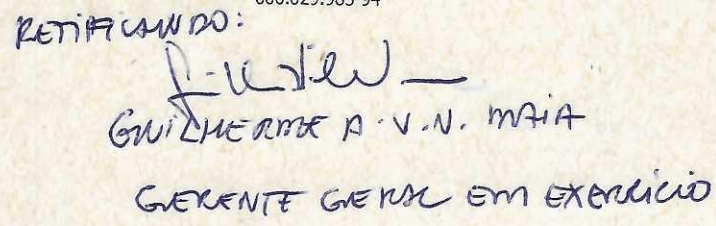 RETIFICANDO:
GUILHERME A. V. N. MAIA
GERENTE GERAL EM EXERCÍCIO